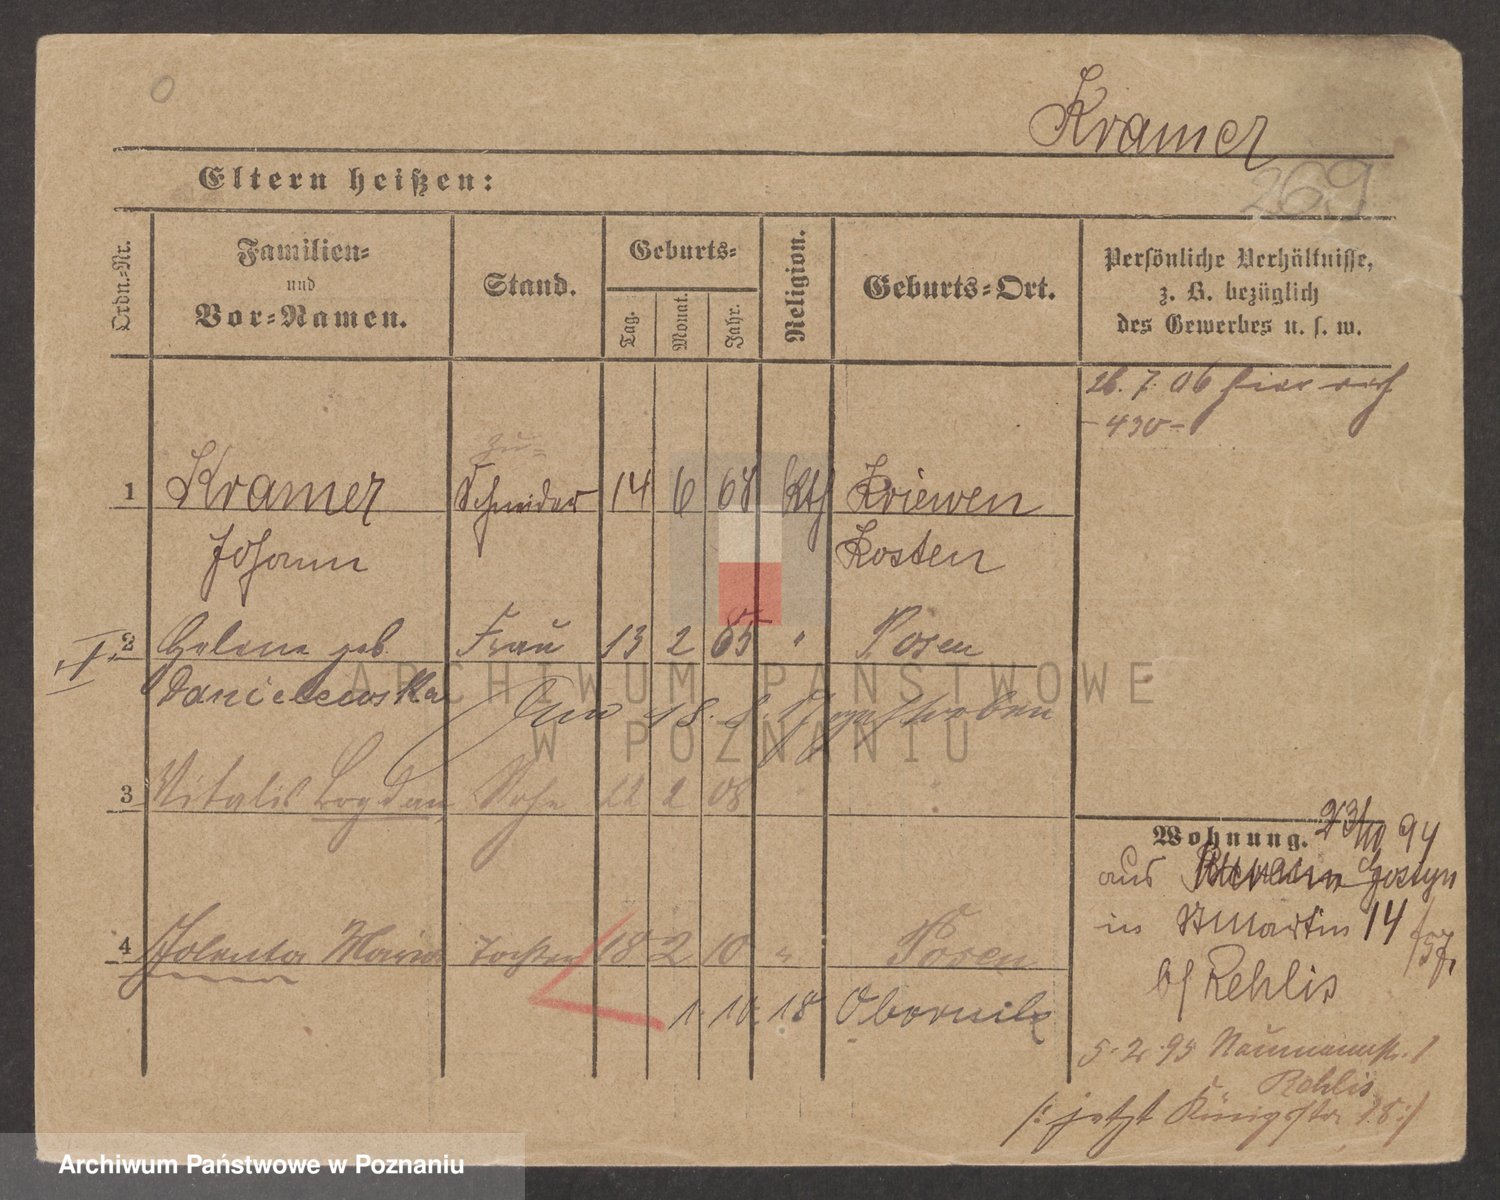 0
Kramer
269
Eltern heißen:
Ordn.-Nr.
Familien-
und
Vor-Namen.
Stand.
Geburts-
Tag.
Monat.
Jahr.
Religion.
Geburts-Ort.
Persönliche Verhältnisse,
z. B. bezüglich
des Gewerbes u. s. w.
26. 7. 06 hier
- 430 -
zu-
1 Kramer Schneider 14 6 68 Kth Kriewen
Johann Kosten
2 Helene geb. Frau 13 2 65 " Posen
I.
Danielewska
18. gestorben
3 Vitalis Bogdan Sohn 22 2 08 " "
4 Jolenta Maria Tochter 18 2 10 " Posen
1. 10. 18 Obornik
Wohnung. 23/10 94
aus Gostyn
in St Martin 14
b/ Rehlis
5. 2. 95 Naumannstr. 1
Rehlis
/: jetzt Königstr. 18 :/
ARCHIWUM PAŃSTWOWE
W POZNANIU
Archiwum Państwowe w Poznaniu